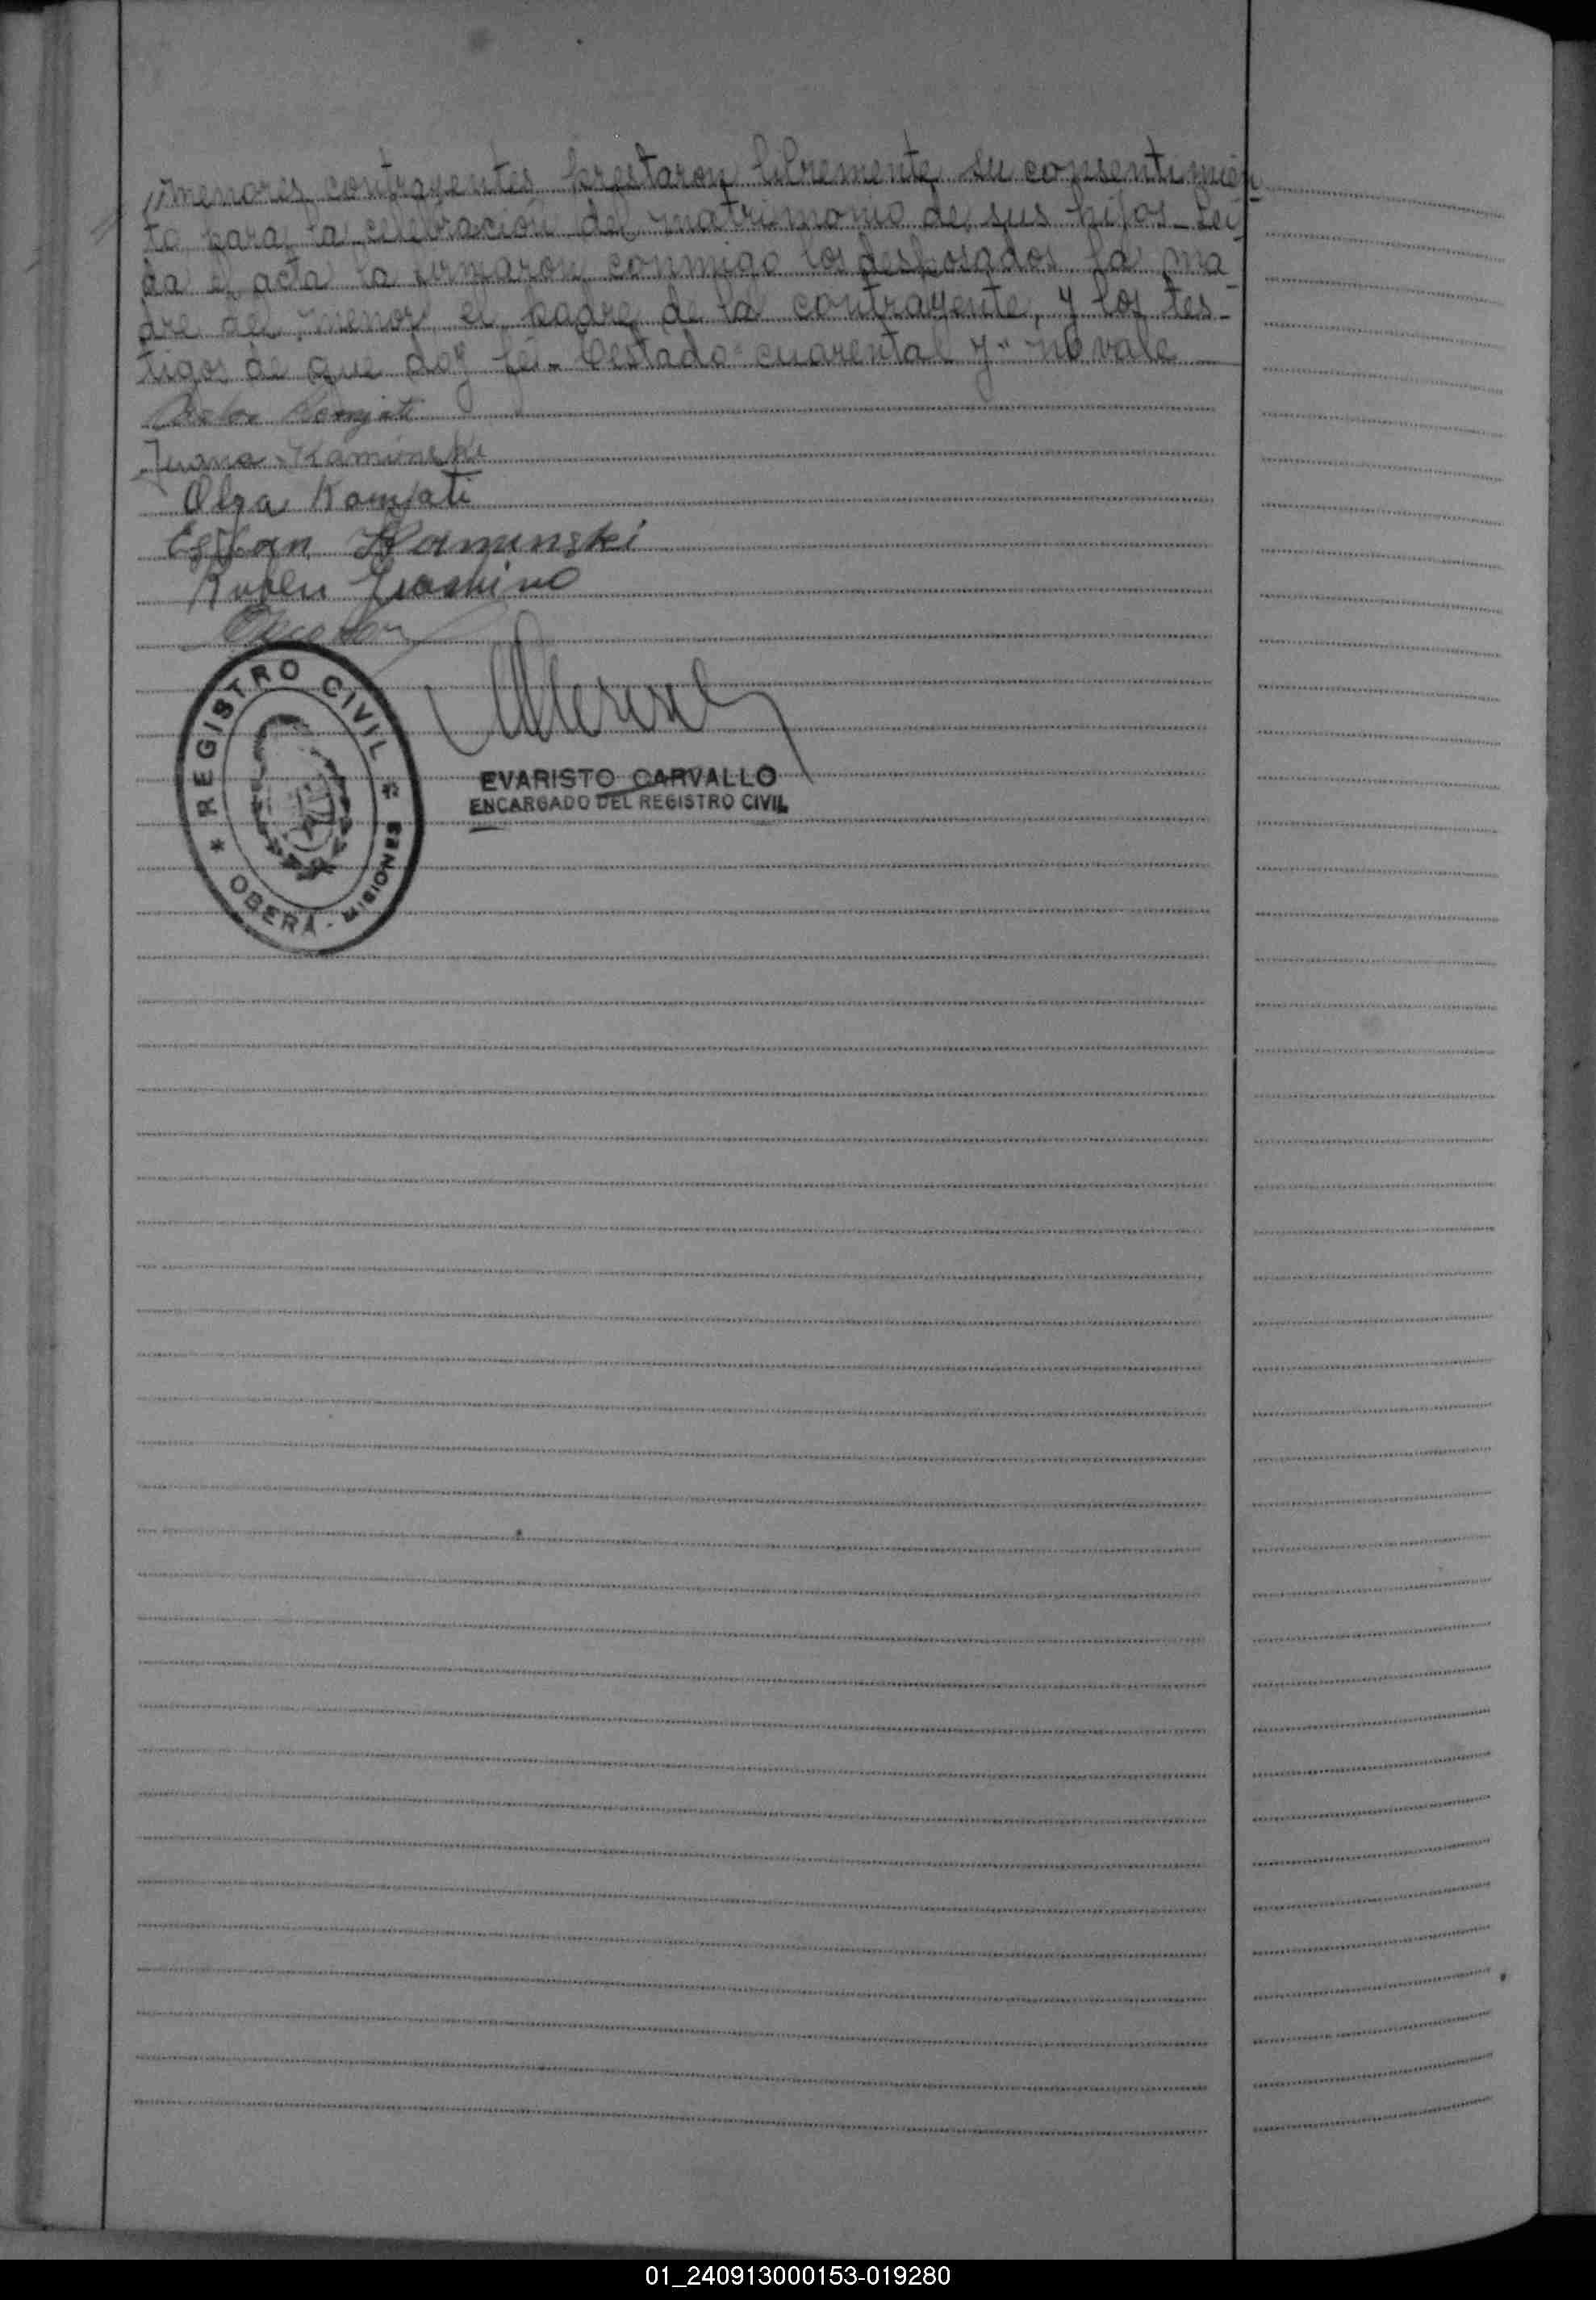 //menores contrayentes prestaron libremente su consentimien
to para la celebración del matrimonio de sus hijos_ Lei
da el acta la firmaron conmigo los desposados la ma
dre del menor el padre de la contrayente, y los tes-
tigos de que doy fé.- Testado cuarenta y" no vale
Komjati
Juana Kaminski
Olga Komjati
Kaminski
Ruben
REGISTRO CIVIL
* OBERÁ - MISIONES *
EVARISTO CARVALLO
ENCARGADO DEL REGISTRO CIVIL
01_240913000153-019280